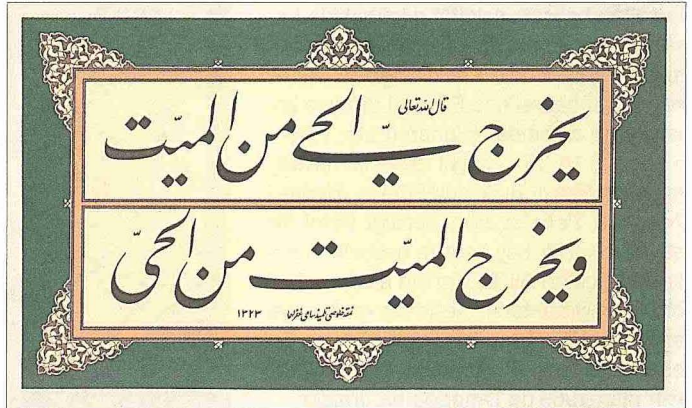 قال الله تعالى
يخرج الحي من الميّت
ويخرج الميّت من الحيّ
نمقه خلوصي تلميذ سامي غفر لهما ١٣٢٣